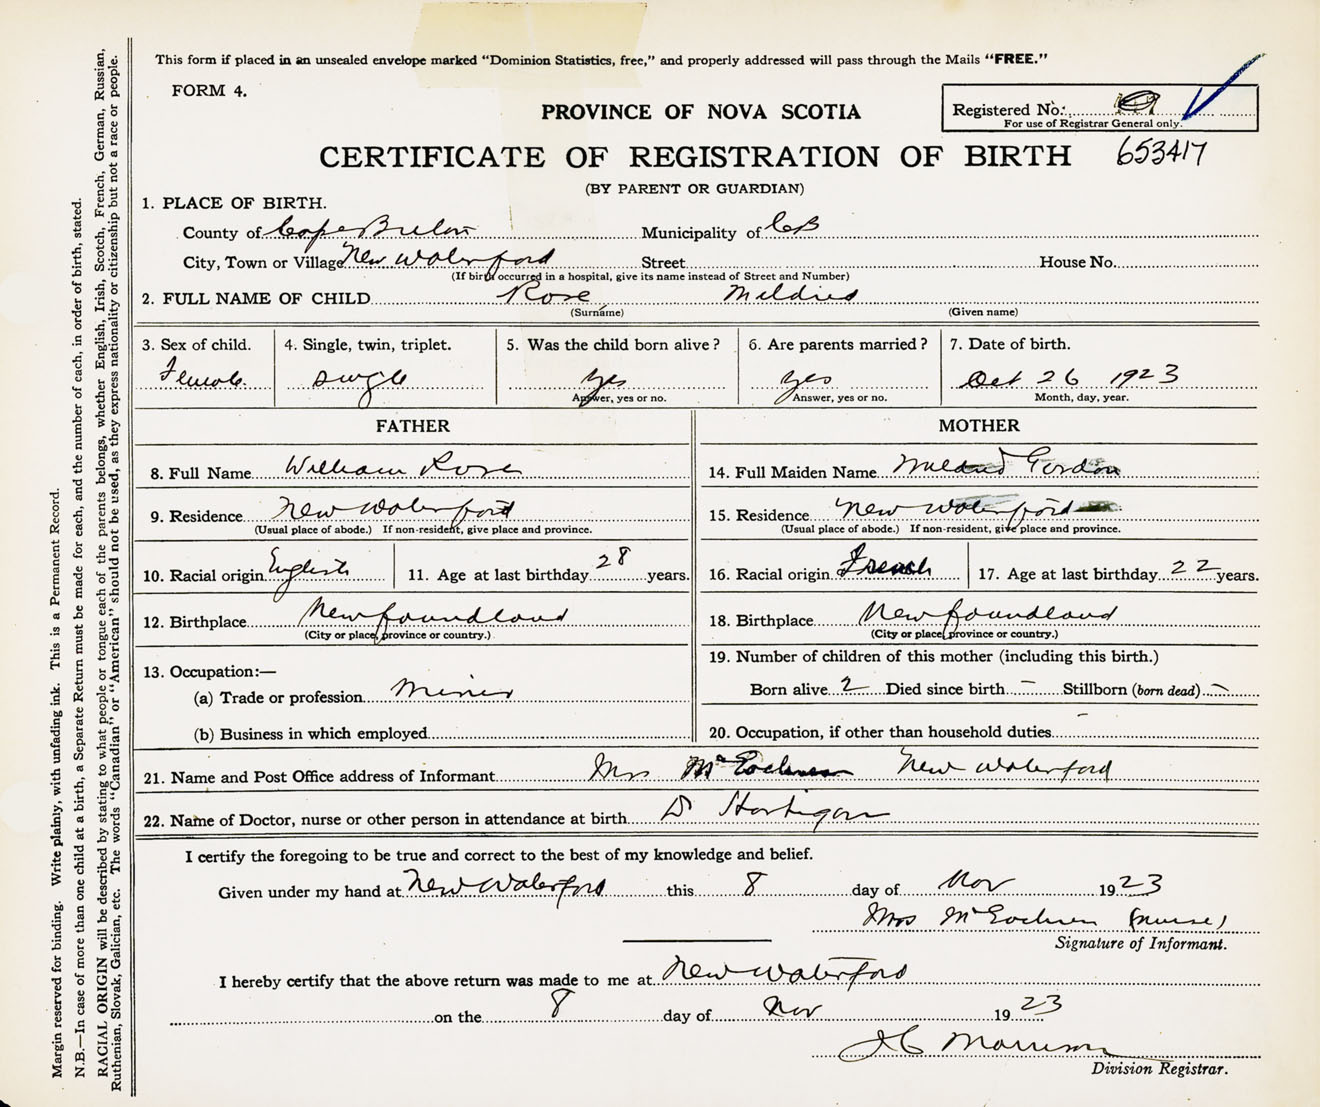 This form if placed in an unsealed envelope marked "Dominion Statistics, free," and properly addressed will pass through the Mails "FREE."
FORM 4.
PROVINCE OF NOVA SCOTIA
Registered No.
For use of Registrar General only.
CERTIFICATE OF REGISTRATION OF BIRTH 653417
(BY PARENT OR GUARDIAN)
1. PLACE OF BIRTH.
County of Cape Breton Municipality of CB
City, Town or Village New Waterford Street House No.
(If birth occurred in a hospital, give its name instead of Street and Number)
2. FULL NAME OF CHILD Rose Mildred
(Surname) (Given name)
3. Sex of child. 4. Single, twin, triplet. 5. Was the child born alive? 6. Are parents married? 7. Date of birth.
Female single yes yes Oct 26 1923
Answer, yes or no. Answer, yes or no. Month, day, year.
FATHER MOTHER
8. Full Name William Rose 14. Full Maiden Name Mildred Gordon
9. Residence New Waterford 15. Residence New Waterford
(Usual place of abode.) If non-resident, give place and province. (Usual place of abode.) If non-resident, give place and province.
10. Racial origin English 11. Age at last birthday 28 years. 16. Racial origin French 17. Age at last birthday 22 years.
12. Birthplace Newfoundland 18. Birthplace Newfoundland
(City or place, province or country.) (City or place, province or country.)
13. Occupation:— 19. Number of children of this mother (including this birth.)
(a) Trade or profession Miner Born alive 2 Died since birth – Stillborn (born dead) –
(b) Business in which employed 20. Occupation, if other than household duties –
21. Name and Post Office address of Informant Mrs McEachren New Waterford
22. Name of Doctor, nurse or other person in attendance at birth Dr Hartigan
I certify the foregoing to be true and correct to the best of my knowledge and belief.
Given under my hand at New Waterford this 8 day of Nov 1923
Mrs McEachren (nurse)
Signature of Informant.
I hereby certify that the above return was made to me at New Waterford
on the 8 day of Nov 1923
J C Morrison
Division Registrar.
Margin reserved for binding. Write plainly, with unfading ink. This is a Permanent Record.
N.B.—In case of more than one child at a birth, a Separate Return must be made for each, and the number of each, in order of birth, stated.
RACIAL ORIGIN will be described by stating to what people or tongue each of the parents belongs, whether English, Irish, Scotch, French, German, Russian,
Ruthenian, Slovak, Galician, etc. The words "Canadian" or "American" should not be used, as they express nationality or citizenship but not a race or people.